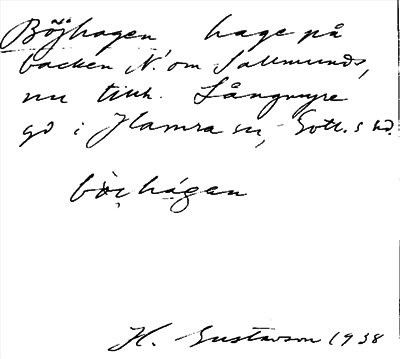 Böjhagen hage på
backen N. om Sallmunds,
nu tillh. Långmyre
gd i Hamra sn, Gotl. s hd.
bòi̯hágen
H. Gustavson 1938